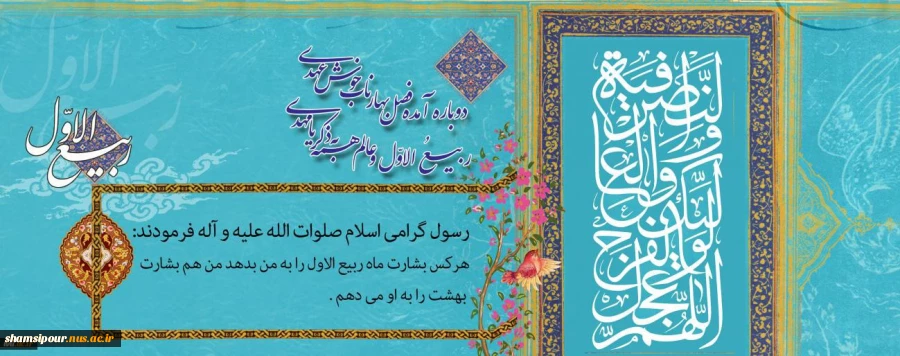 دوباره آمده فصل بهار ناب خوش عهدی
ربیعُ الاوّل و عالم همه به ذکر یا مهدی
ربیع الاوّل
رسول گرامی اسلام صلوات الله علیه و آله فرمودند:
هرکس بشارت ماه ربیع الاول را به من بدهد من هم بشارت
بهشت را به او می دهم .
اللّهمّ عجّل لولیّک الفرج والعافیة والنّصر
shamsipour.nus.ac.ir